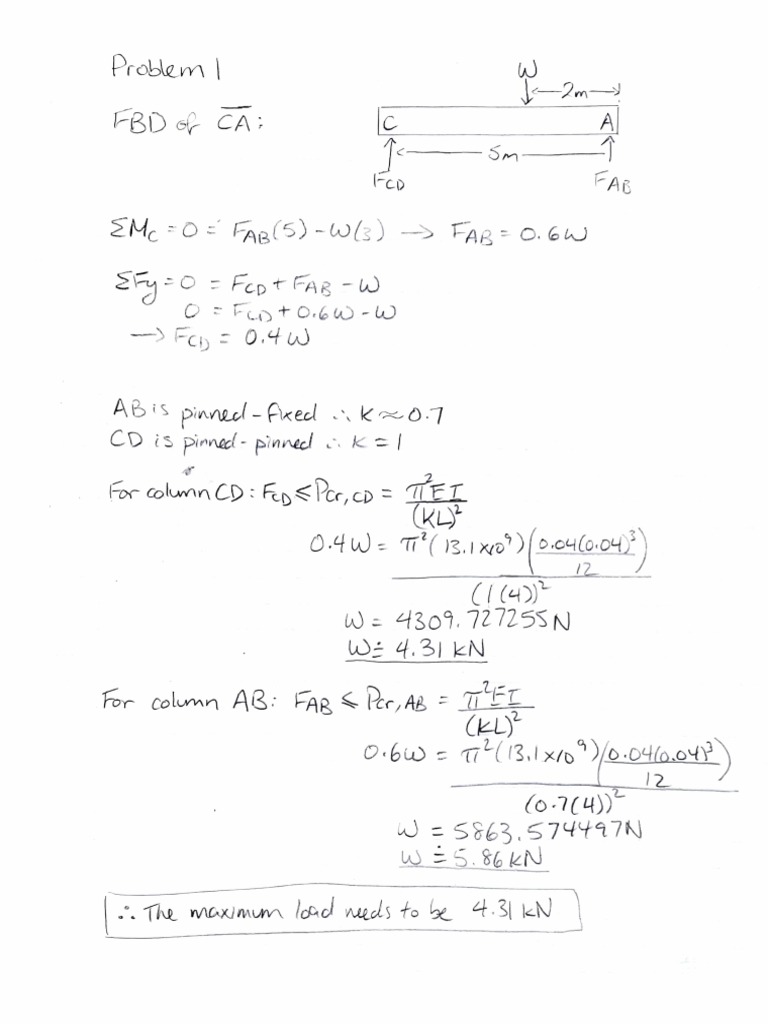 Problem 1
W
2m
FBD of C̅A̅:
C A
5m
F_CD F_AB
ΣM_C = 0 = F_AB(5) - W(3) → F_AB = 0.6W
ΣFy = 0 = F_CD + F_AB - W
0 = F_CD + 0.6W - W
→ F_CD = 0.4W
AB is pinned-fixed ∴ K ≈ 0.7
CD is pinned-pinned ∴ K = 1
For column CD: F_CD ≤ Pcr,CD = π²EI
(KL)²
0.4W = π²(13.1x10⁹)(0.04(0.04)³)
12
(1(4))²
W = 4309.727255N
W ≐ 4.31 kN
For column AB: F_AB ≤ Pcr,AB = π²EI
(KL)²
0.6W = π²(13.1x10⁹)(0.04(0.04)³)
12
(0.7(4))²
W = 5863.574497N
W ≐ 5.86 kN
∴ The maximum load needs to be 4.31 kN